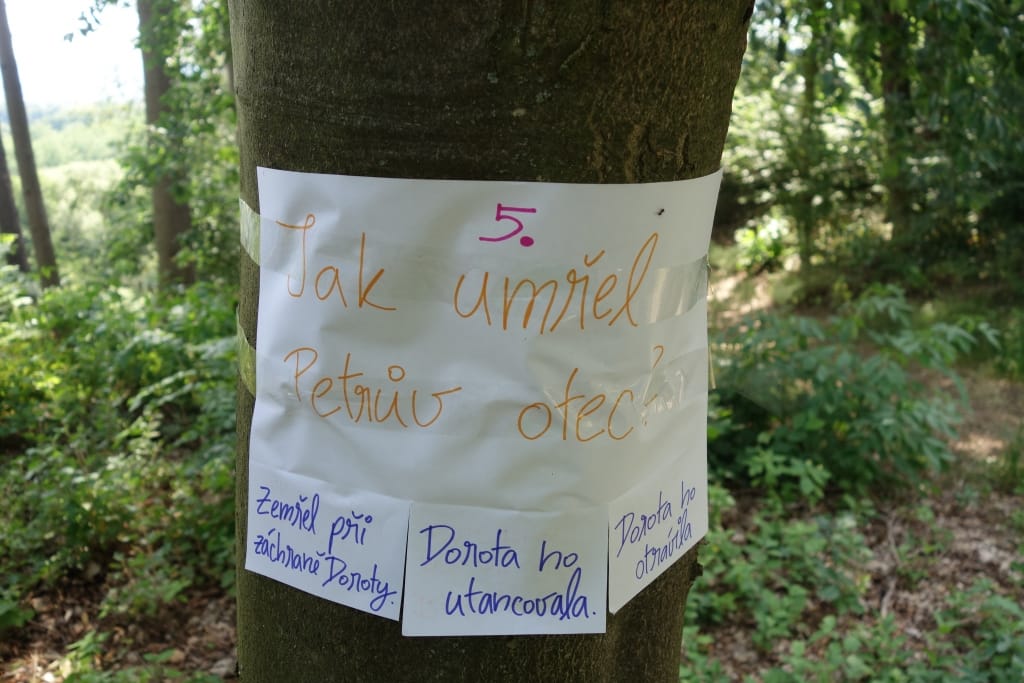 5.
Jak umřel
Petrův otec?
Zemřel při
záchraně Doroty.
Dorota ho
utancovala.
Dorota ho
otrávila